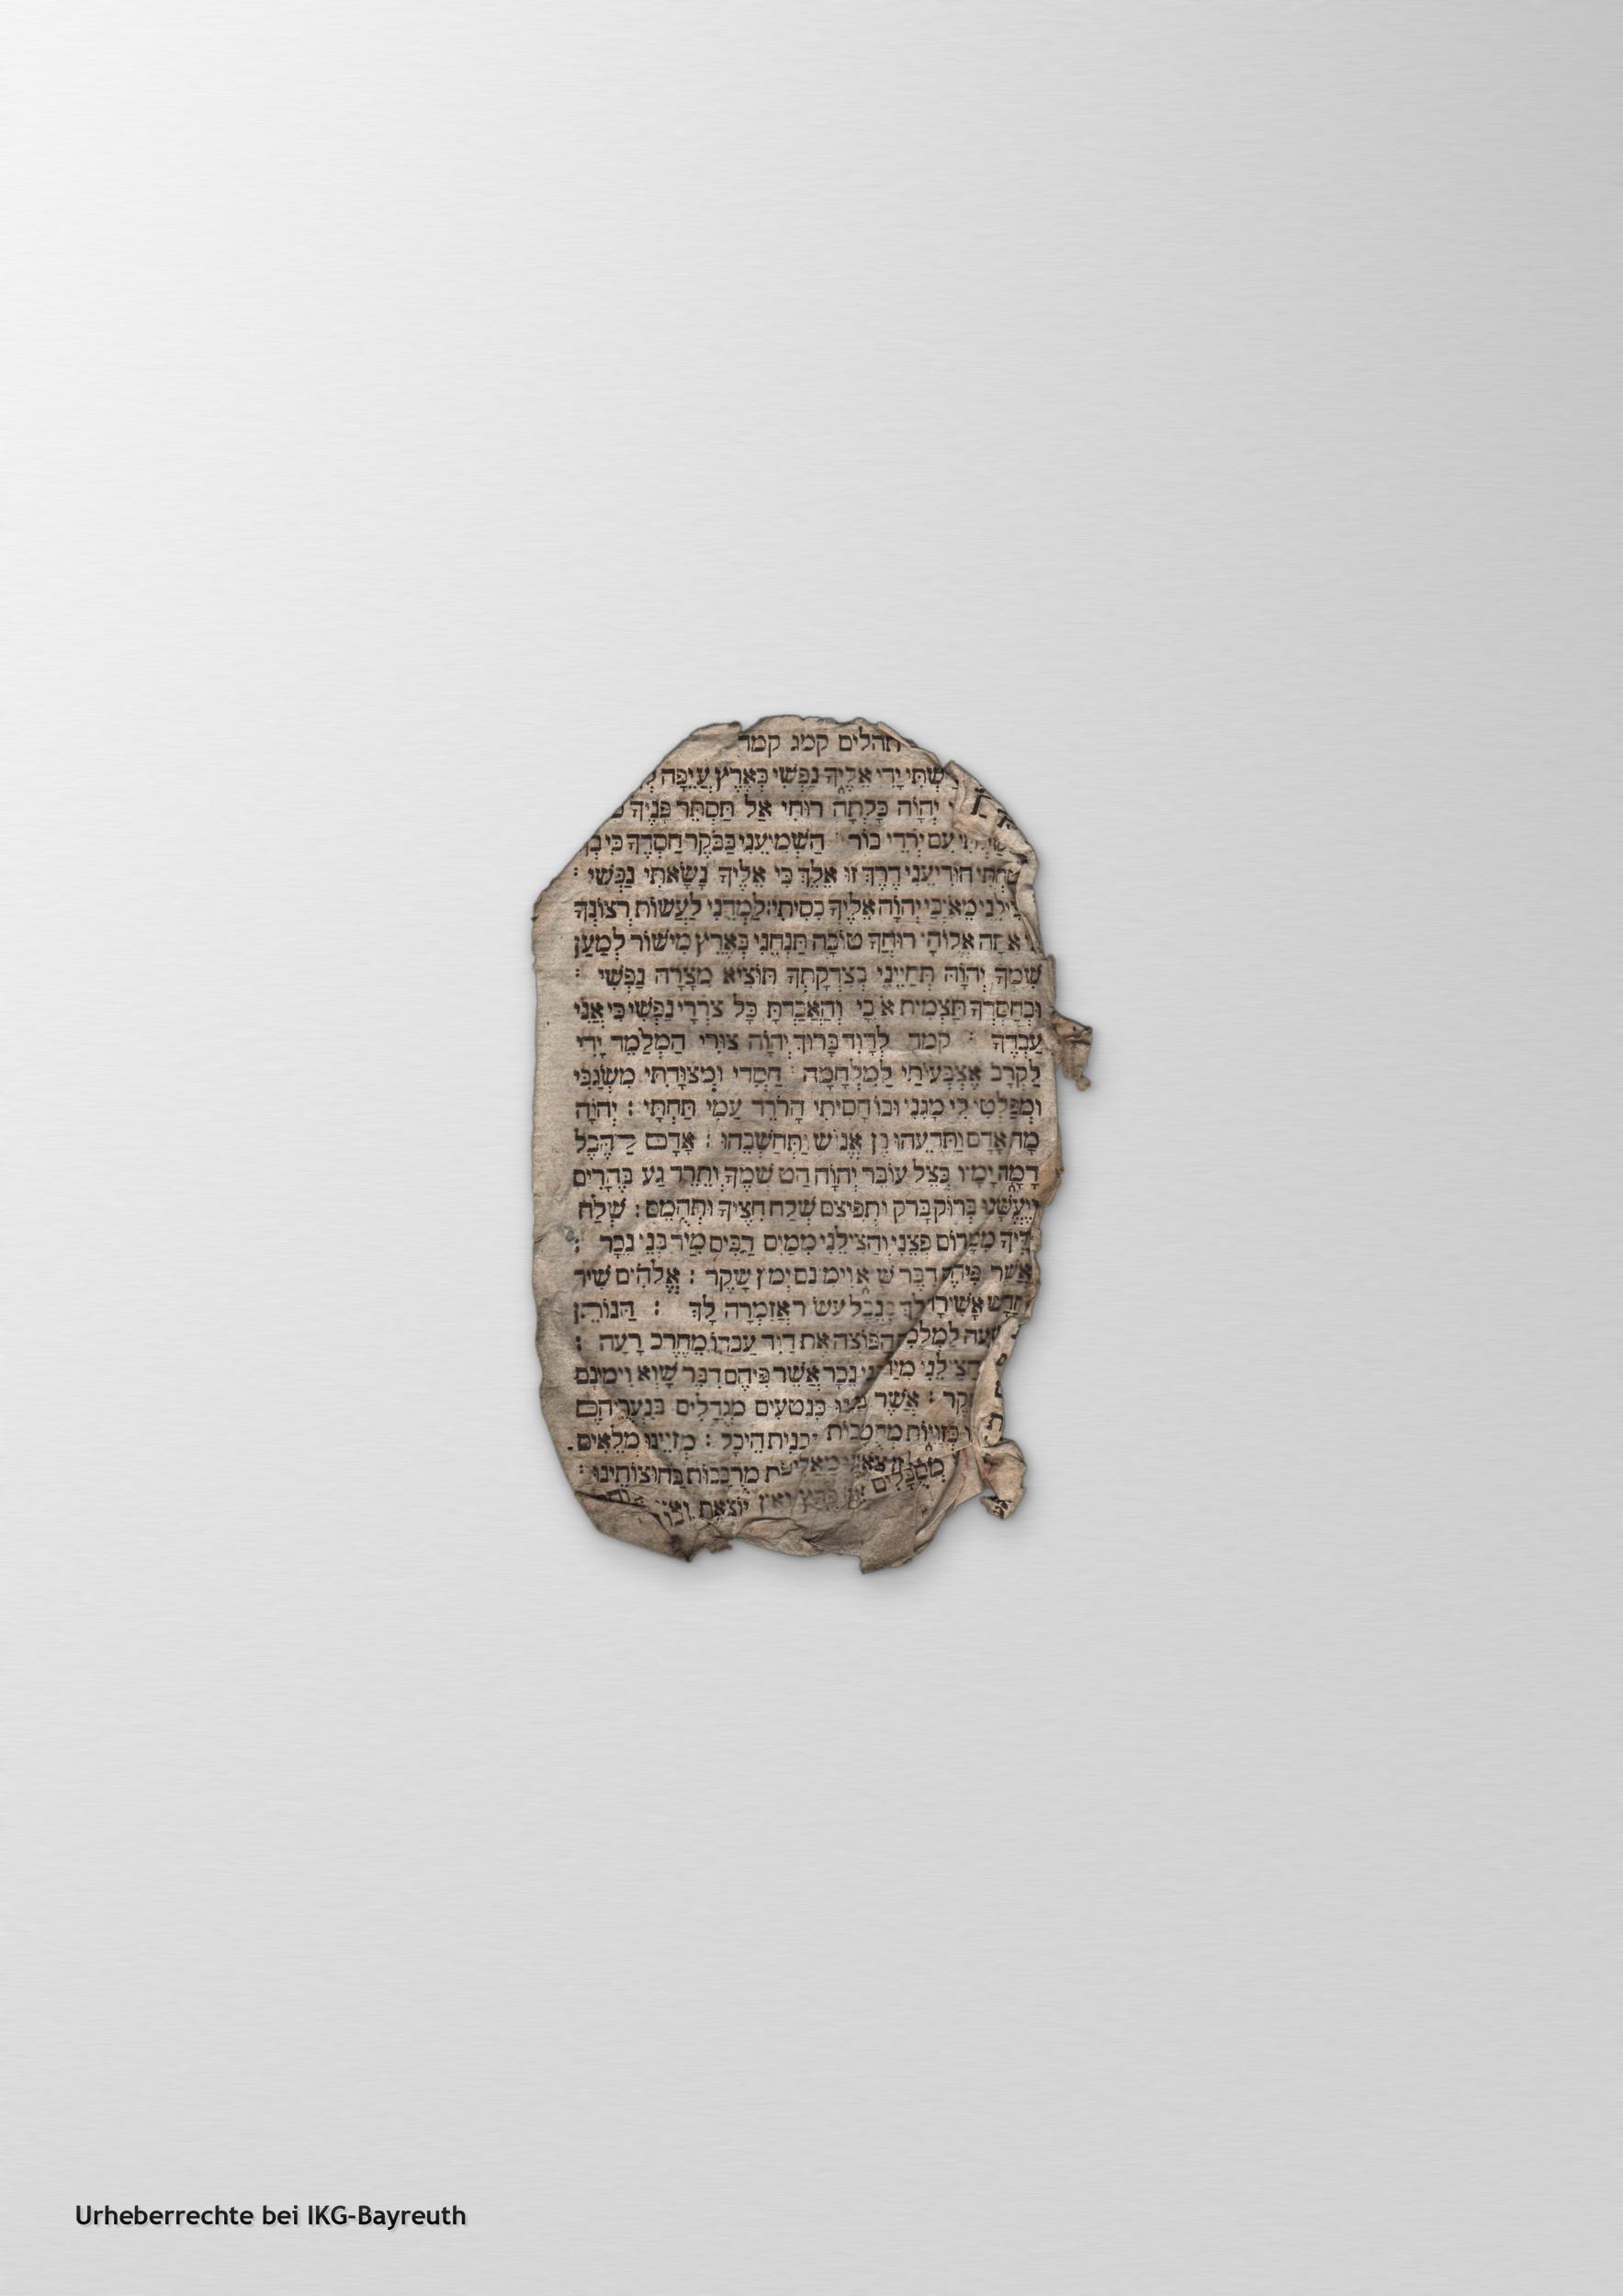 תהלים קמג קמד
ידי אליך נפשי בארץ עיפה
יהוה כלתה רוחי אל תסתר פניך
עם ירדי בור השמיעני בבקר חסדך כי
הודיעני דרך זו אלך כי אליך נשאתי נפשי :
יהוה אליך כסיתי : למדני לעשות רצונך
אתה אלוהי רוחך טובה תנחני בארץ מישור למען
שמך יהוה תחייני בצדקתך תוציא מצרה נפשי :
ובחסדך תצמית והאבדת כל צררי נפשי כי אני
עבדך : קמד לדוד ברוך יהוה צורי המלמד ידי
לקרב אצבעותי למלחמה : חסדי ומצודתי משגבי
ומפלטי לי מגני ובו חסיתי הרודד עמי תחתי : יהוה
מה אדם ותדעהו בן אנוש ותחשבהו : אדם להבל
דמה ימיו כצל עובר יהוה הט שמך ותרד גע בהרים
ויעשנו ברוק ברק ותפיצם שלח חציך ותהמם : שלח
ידיך ממרום פצני והצילני ממים רבים מיד בני נכר :
אשר פיהם דבר שוא וימינם ימין שקר : אלהים שיר
חדש אשירה לך בנבל עשור אזמרה לך : הנותן
למלכים הפוצה את דויד עבדו מחרב רעה :
והצילני מיד בני נכר אשר פיהם דבר שוא וימינם
אשר בנינו כנטעים מגדלים בנעוריהם
כזויות מחטבות תבנית היכל : מזוינו מלאים
צאוננו מאליפות מרבבות בחוצותינו :
מסבלים אין פרץ ואין יוצאת ואין
Urheberrechte bei IKG-Bayreuth